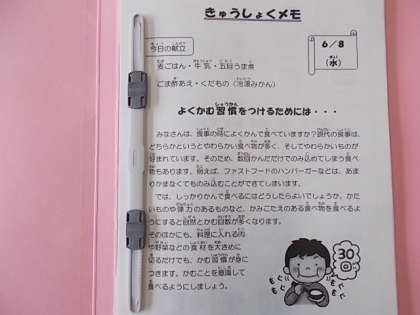 きゅうしょくメモ
今日の献立
6/8
(水)
麦ごはん・牛乳・五目うま煮
ごま酢あえ・くだもの(冷凍みかん)
よくかむ習慣をつけるためには・・・
みなさんは、食事の時によくかんで食べていますか?現代の食事は、
どちらかというとやわらかい食べ物が多く、そしてやわらかいものが
好まれています。そのため、数回かんだだけでのみ込めてしまう食べ
物もあります。例えば、ファストフードのハンバーガーなどは、あま
りかまなくてものみ込むことができてしまいます。
では、しっかりかんで食べるにはどうしたらよいでしょうか。かた
いものや弾力のあるものなど、かみごたえのある食べ物を食べるよ
うにすると自然とかむ回数が多くなります。
そのほかにも、料理に入れる肉
や野菜などの食材を大きめに
切るだけでも、かむ習慣が身に
つきます。かむことを意識して
食べるようにしましょう。
30回
もぐもぐ
もぐもぐ